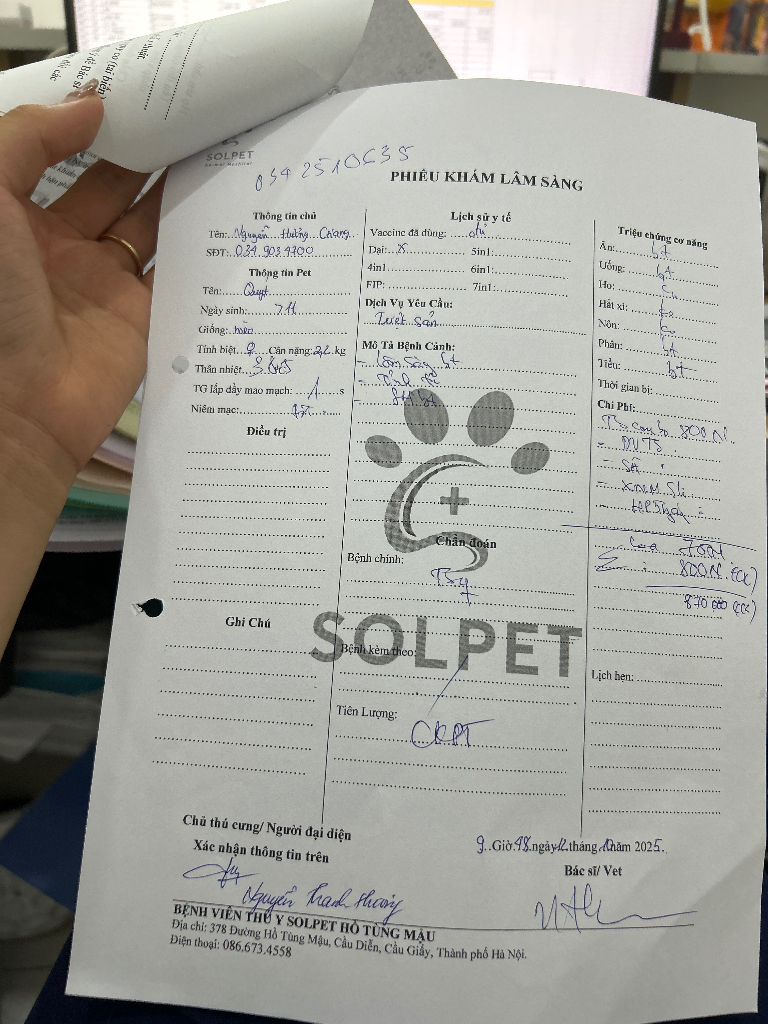 SOLPET
Animal Hospital
034 2510635
PHIẾU KHÁM LÂM SÀNG
Thông tin chủ
Tên: Nguyễn Hương Giang
SĐT: 034 903 4200
Thông tin Pet
Tên: Quýt
Ngày sinh: 7th
Giống: mèo
Tính biệt ♀ Cân nặng: 2,2 kg
Thân nhiệt
TG lấp đầy mao mạch: 1 s
Niêm mạc:
Điều trị
Ghi Chú
Lịch sử y tế
Vaccine đã dùng: đủ
Dại: x 5in1:
4in1 6in1:
FIP: 7in1:
Dịch Vụ Yêu Cầu:
Triệt sản
Mô Tả Bệnh Cảnh:
- Lâm sàng bt
SOLPET
Chẩn đoán
Bệnh chính:
Bệnh kèm theo:
Tiên Lượng:
CRPT
Triệu chứng cơ năng
Ăn: bt
Uống: bt
Ho:
Hắt xì:
Nôn:
Phân: bt
Tiểu: bt
Thời gian bị:
Chi Phí:
combo 800N
XNM
800N (CK)
870 000
Lịch hẹn:
Chủ thú cưng/ Người đại diện
Xác nhận thông tin trên
Nguyễn Thanh Hương
9 Giờ 48 ngày 12 tháng 10 năm 2025.
Bác sĩ/ Vet
BỆNH VIỆN THÚ Y SOLPET HỒ TÙNG MẬU
Địa chỉ: 378 Đường Hồ Tùng Mậu, Cầu Diễn, Cầu Giấy, Thành phố Hà Nội.
Điện thoại: 086.673.4558